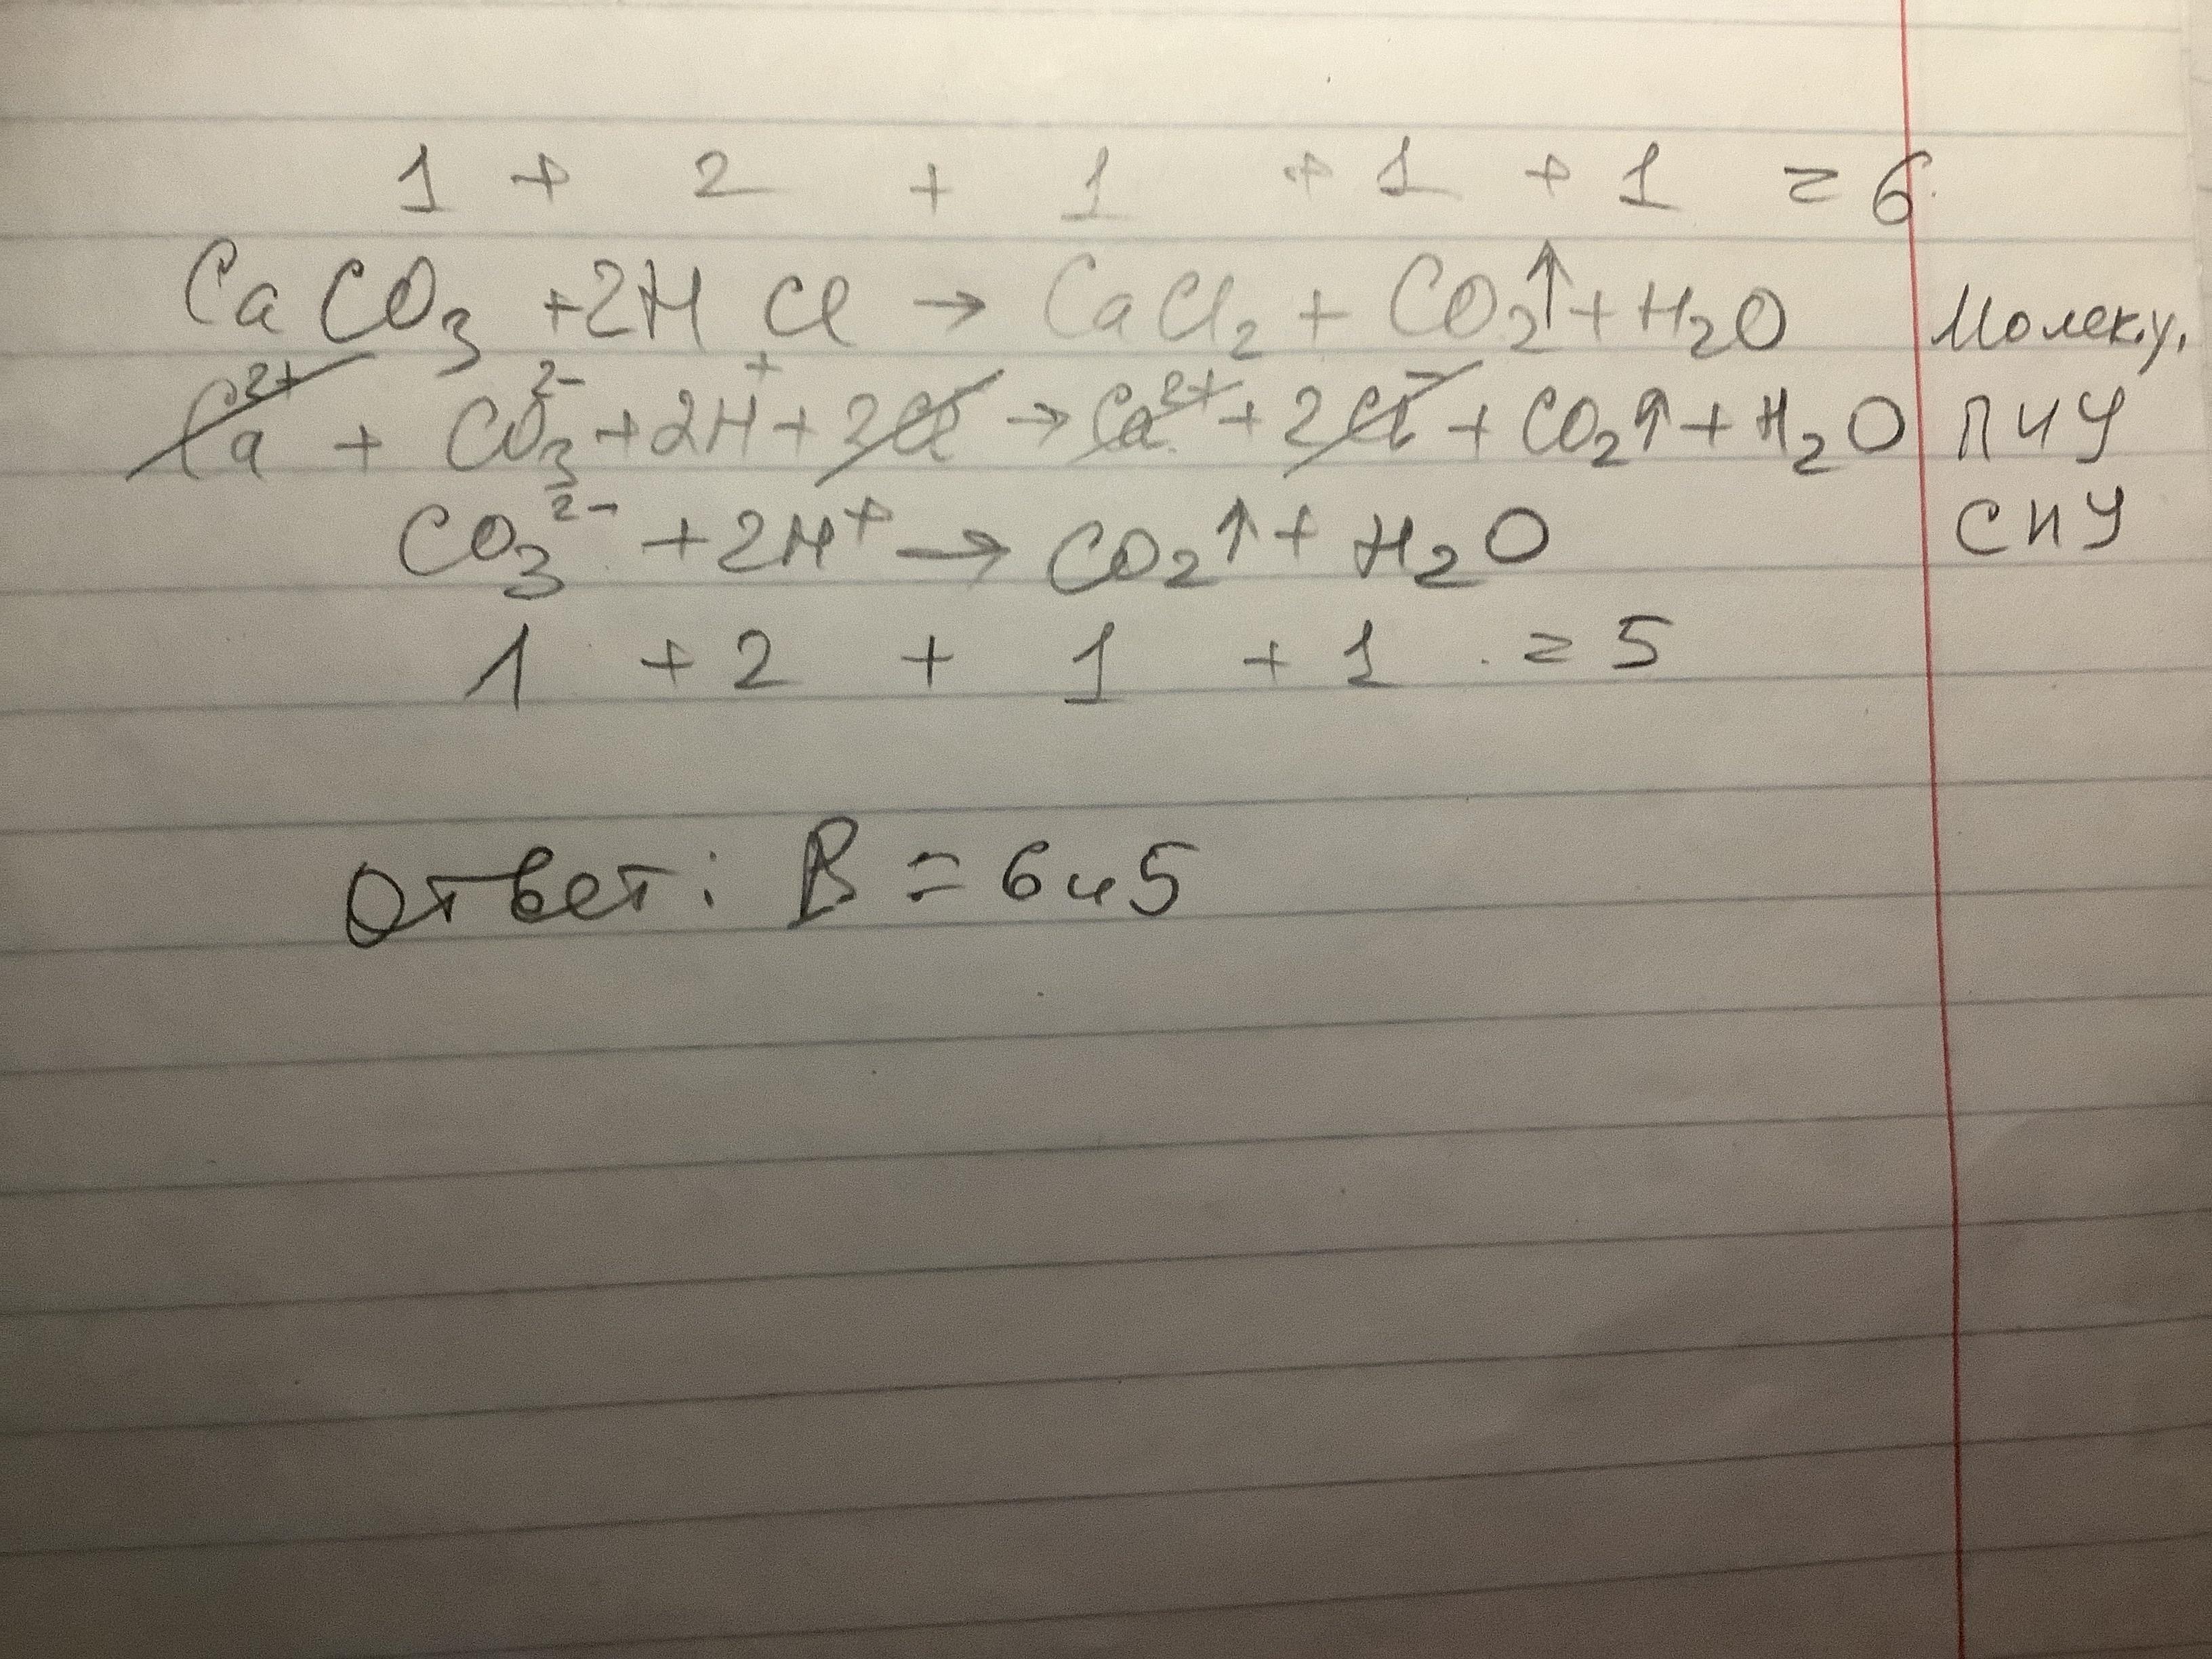 1 + 2 + 1 + 1 + 1 = 6
CaCO₃ + 2HCl → CaCl₂ + CO₂↑ + H₂O Молек.у.
Ca²⁺ + CO₃²⁻ + 2H⁺ + 2Cl → Ca²⁺ + 2Cl⁻ + CO₂↑ + H₂O ПИУ
CO₃²⁻ + 2H⁺ → CO₂↑ + H₂O СИУ
1 + 2 + 1 + 1 = 5
Ответ: В = 6 и 5